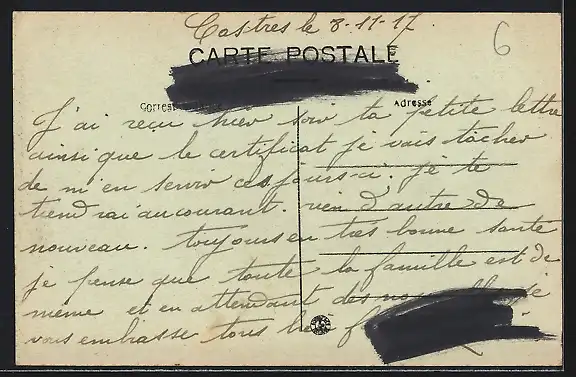 Castres le 3-11-17.
6
CARTE POSTALE
Correspondance
Adresse
J'ai reçu hier soir ta petite lettre
ainsi que le certificat je vais tâcher
de m'en servir ces jours-ci. je te
tiendrai au courant. rien d'autre de
nouveau. toujours en très bonne santé
je pense que toute la famille est de
meme et en attendant des nouvelles je
vous embrasse tous bien